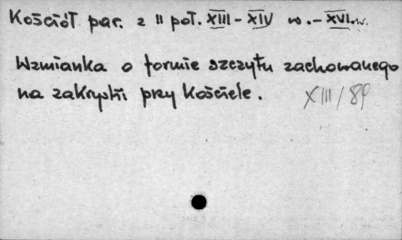 Kościół par. z II poł. XIII - XIV w. - XVI w.
Wzmianka o formie szczytu zachowanego
na zakrystii przy Kościele.
XIII/89